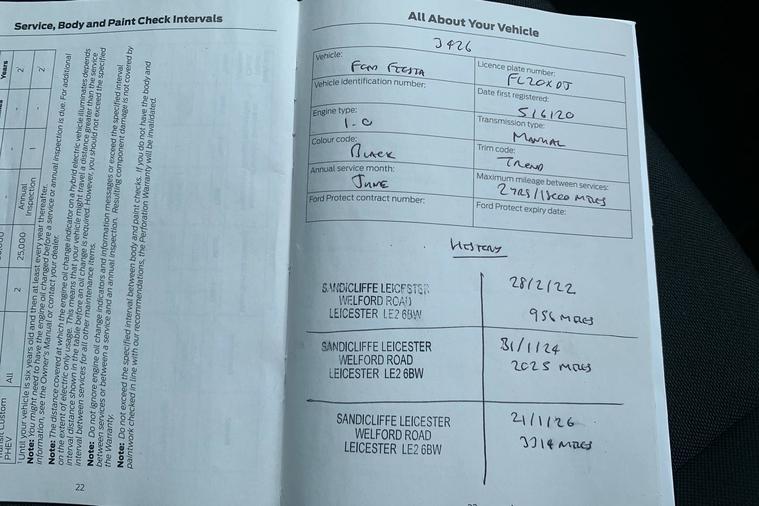 Service, Body and Paint Check Intervals
Years
2
2
1
Annual
Inspection
25,000
2
All
PHEV
Until your vehicle is six years old and then at least every year thereafter.
Note: You might need to have the engine oil changed before a service or annual inspection is due. For additional
information, see the Owner's Manual or contact your dealer.
Note: The distance covered at which the engine oil change indicator on a hybrid electric vehicle illuminates depends
on the extent of electric only usage. This means that your vehicle might travel a distance greater than the service
interval distance shown in the table before an oil change is required. However, you should not exceed the specified
interval between services for all other maintenance items.
Note: Do not ignore engine oil change indicators and information messages or exceed the specified interval
between services or between a service and an annual inspection. Resulting component damage is not covered by
the Warranty.
Note: Do not exceed the specified interval between body and paint checks. If you do not have the body and
paintwork checked in line with our recommendations, the Perforation Warranty will be invalidated.
22
All About Your Vehicle
3426
Vehicle:
FORD FIESTA
Licence plate number:
FL20XOJ
Vehicle identification number:
Date first registered:
5/6/20
Engine type:
1.0
Transmission type:
MANUAL
Colour code:
BLACK
Trim code:
TREND
Annual service month:
JUNE
Maximum mileage between services:
2 YRS/18000 MILES
Ford Protect contract number:
Ford Protect expiry date:
HISTORY
SANDICLIFFE LEICESTER
WELFORD ROAD
LEICESTER LE2 6BW
28/2/22
956 MILES
SANDICLIFFE LEICESTER
WELFORD ROAD
LEICESTER LE2 6BW
31/1/24
2025 MILES
SANDICLIFFE LEICESTER
WELFORD ROAD
LEICESTER LE2 6BW
21/1/26
3314 MILES